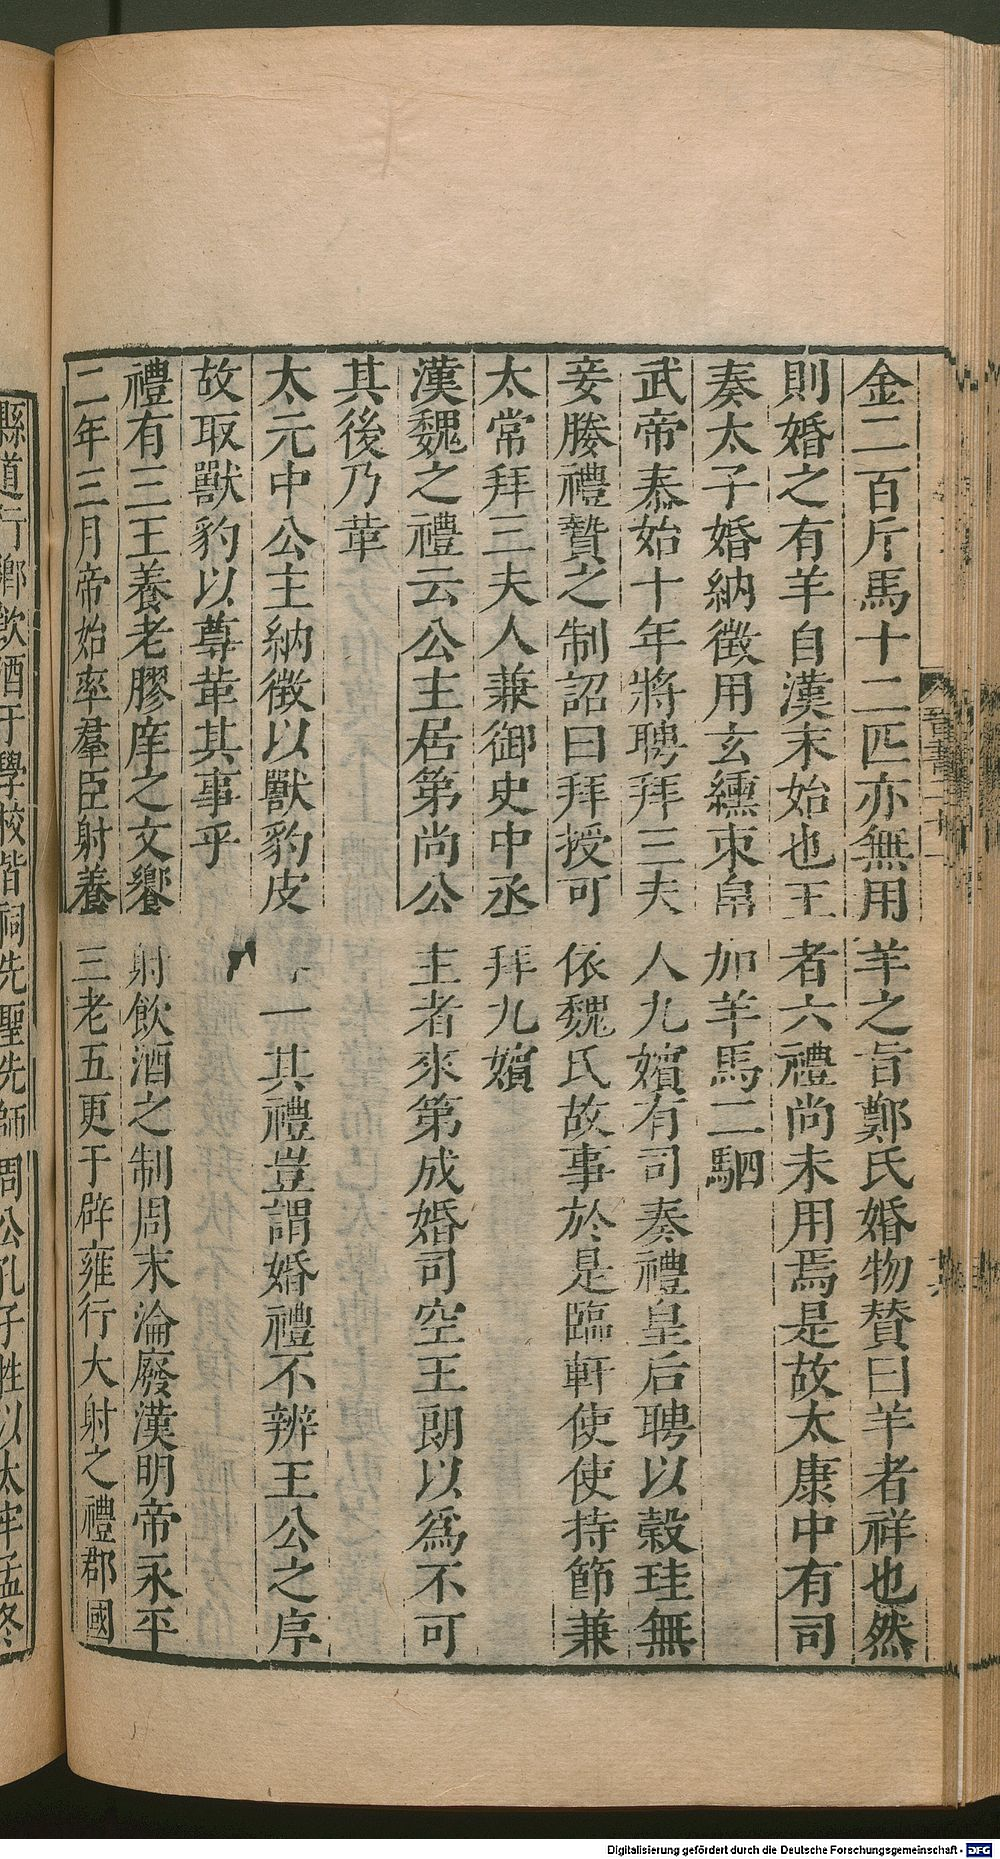 金二百斤馬十二匹亦無用羊之旨鄭氏婚物贊曰羊者祥也然
則婚之有羊自漢末始也王者六禮尚未用焉是故太康中有司
奏太子婚納徵用玄纁束帛加羊馬二駟
武帝泰始十年將聘拜三夫人九嬪有司奏禮皇后聘以穀珪無
妾媵禮贄之制詔曰拜授可依魏氏故事於是臨軒使使持節兼
太常拜三夫人兼御史中丞拜九嬪
漢魏之禮云公主居第尚公主者來第成婚司空王朗以爲不可
其後乃革
太元中公主納徵以獸豹皮一其禮豈謂婚禮不辨王公之序
故取獸豹以尊革其事乎
禮有三王養老膠庠之文饗射飲酒之制周末淪廢漢明帝永平
二年三月帝始率羣臣射養三老五更于辟雍行大射之禮郡國
縣道行鄉飲酒于學校皆祠先聖先師周公孔子牲以太牢孟冬
晉書二十一
Digitalisierung gefördert durch die Deutsche Forschungsgemeinschaft - DFG